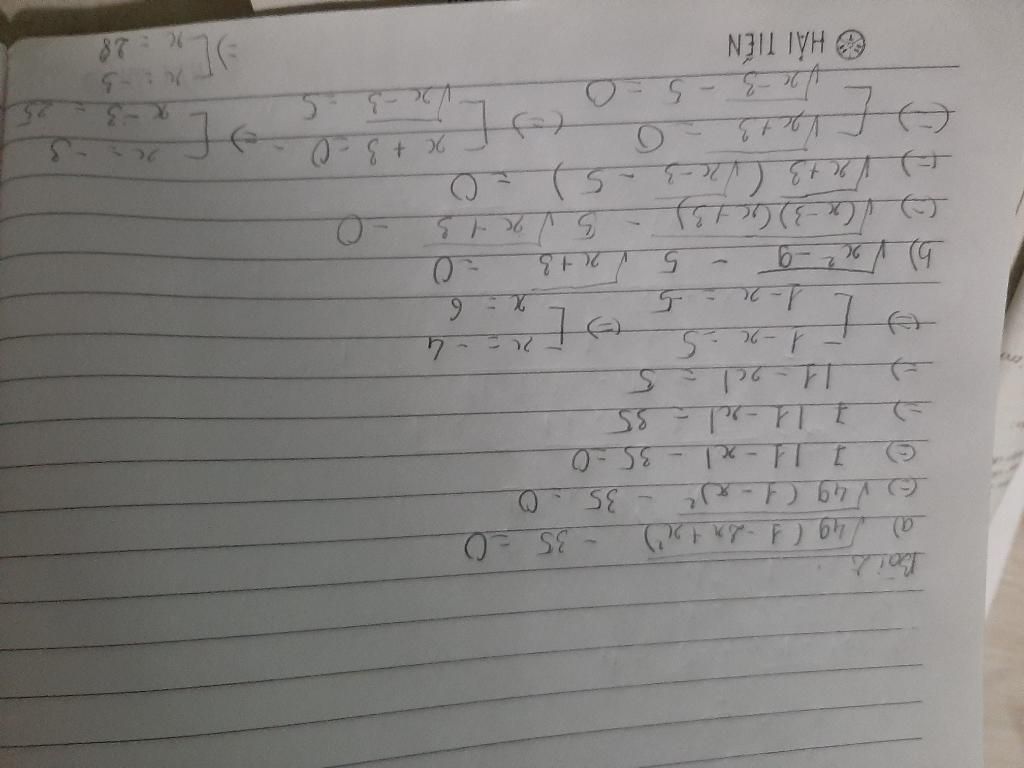 Bài 2
a) √49(1-2x+x²) - 35 = 0
(=) √49(1-x)² - 35 = 0
(=) 7|1-x| - 35 = 0
=) 7|1-x| = 35
=) |1-x| = 5
(=) [ 1-x = 5 (=) [ x = -4
[ 1-x = -5 [ x = 6
b) √x²-9 - 5√x+3 = 0
(=) √(x-3)(x+3) - 5√x+3 = 0
(=) √x+3 (√x-3 - 5) = 0
(=) [ √x+3 = 0 (=) [ x+3 = 0 =) [ x = -3
[ √x-3 - 5 = 0 [ √x-3 = 5 [ x-3 = 25
=) [ x = -3
[ x = 28
HẢI TIẾN